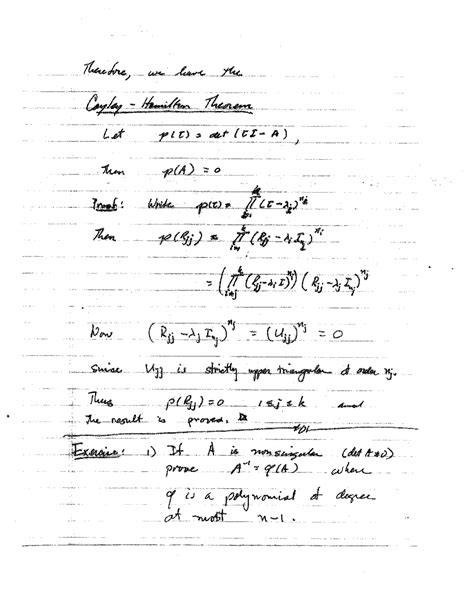 Therefore, we have the
Cayley-Hamilton Theorem
Let p(τ) = det (τI - A),
Then p(A) = 0
Proof: Write p(τ) = ∏_{i=1}^{k} (τ - λ_i)^{n_i}
Then p(R_jj) = ∏_{i=1}^{k} (R_jj - λ_i I_{n_j})^{n_i}
= ( ∏_{i≠j}^{k} (R_jj - λ_i I)^{n_i} ) (R_jj - λ_j I_{n_j})^{n_j}
Now (R_jj - λ_j I_{n_j})^{n_j} = (U_jj)^{n_j} = 0
U_jj is strictly upper triangular of order n_j.
Thus p(R_jj) = 0 1 ≤ j ≤ k and
the result is proved.
Exercise: 1) If A is nonsingular (det A ≠ 0)
prove A^{-1} = q(A) where
q is a polynomial of degree
at most n-1.